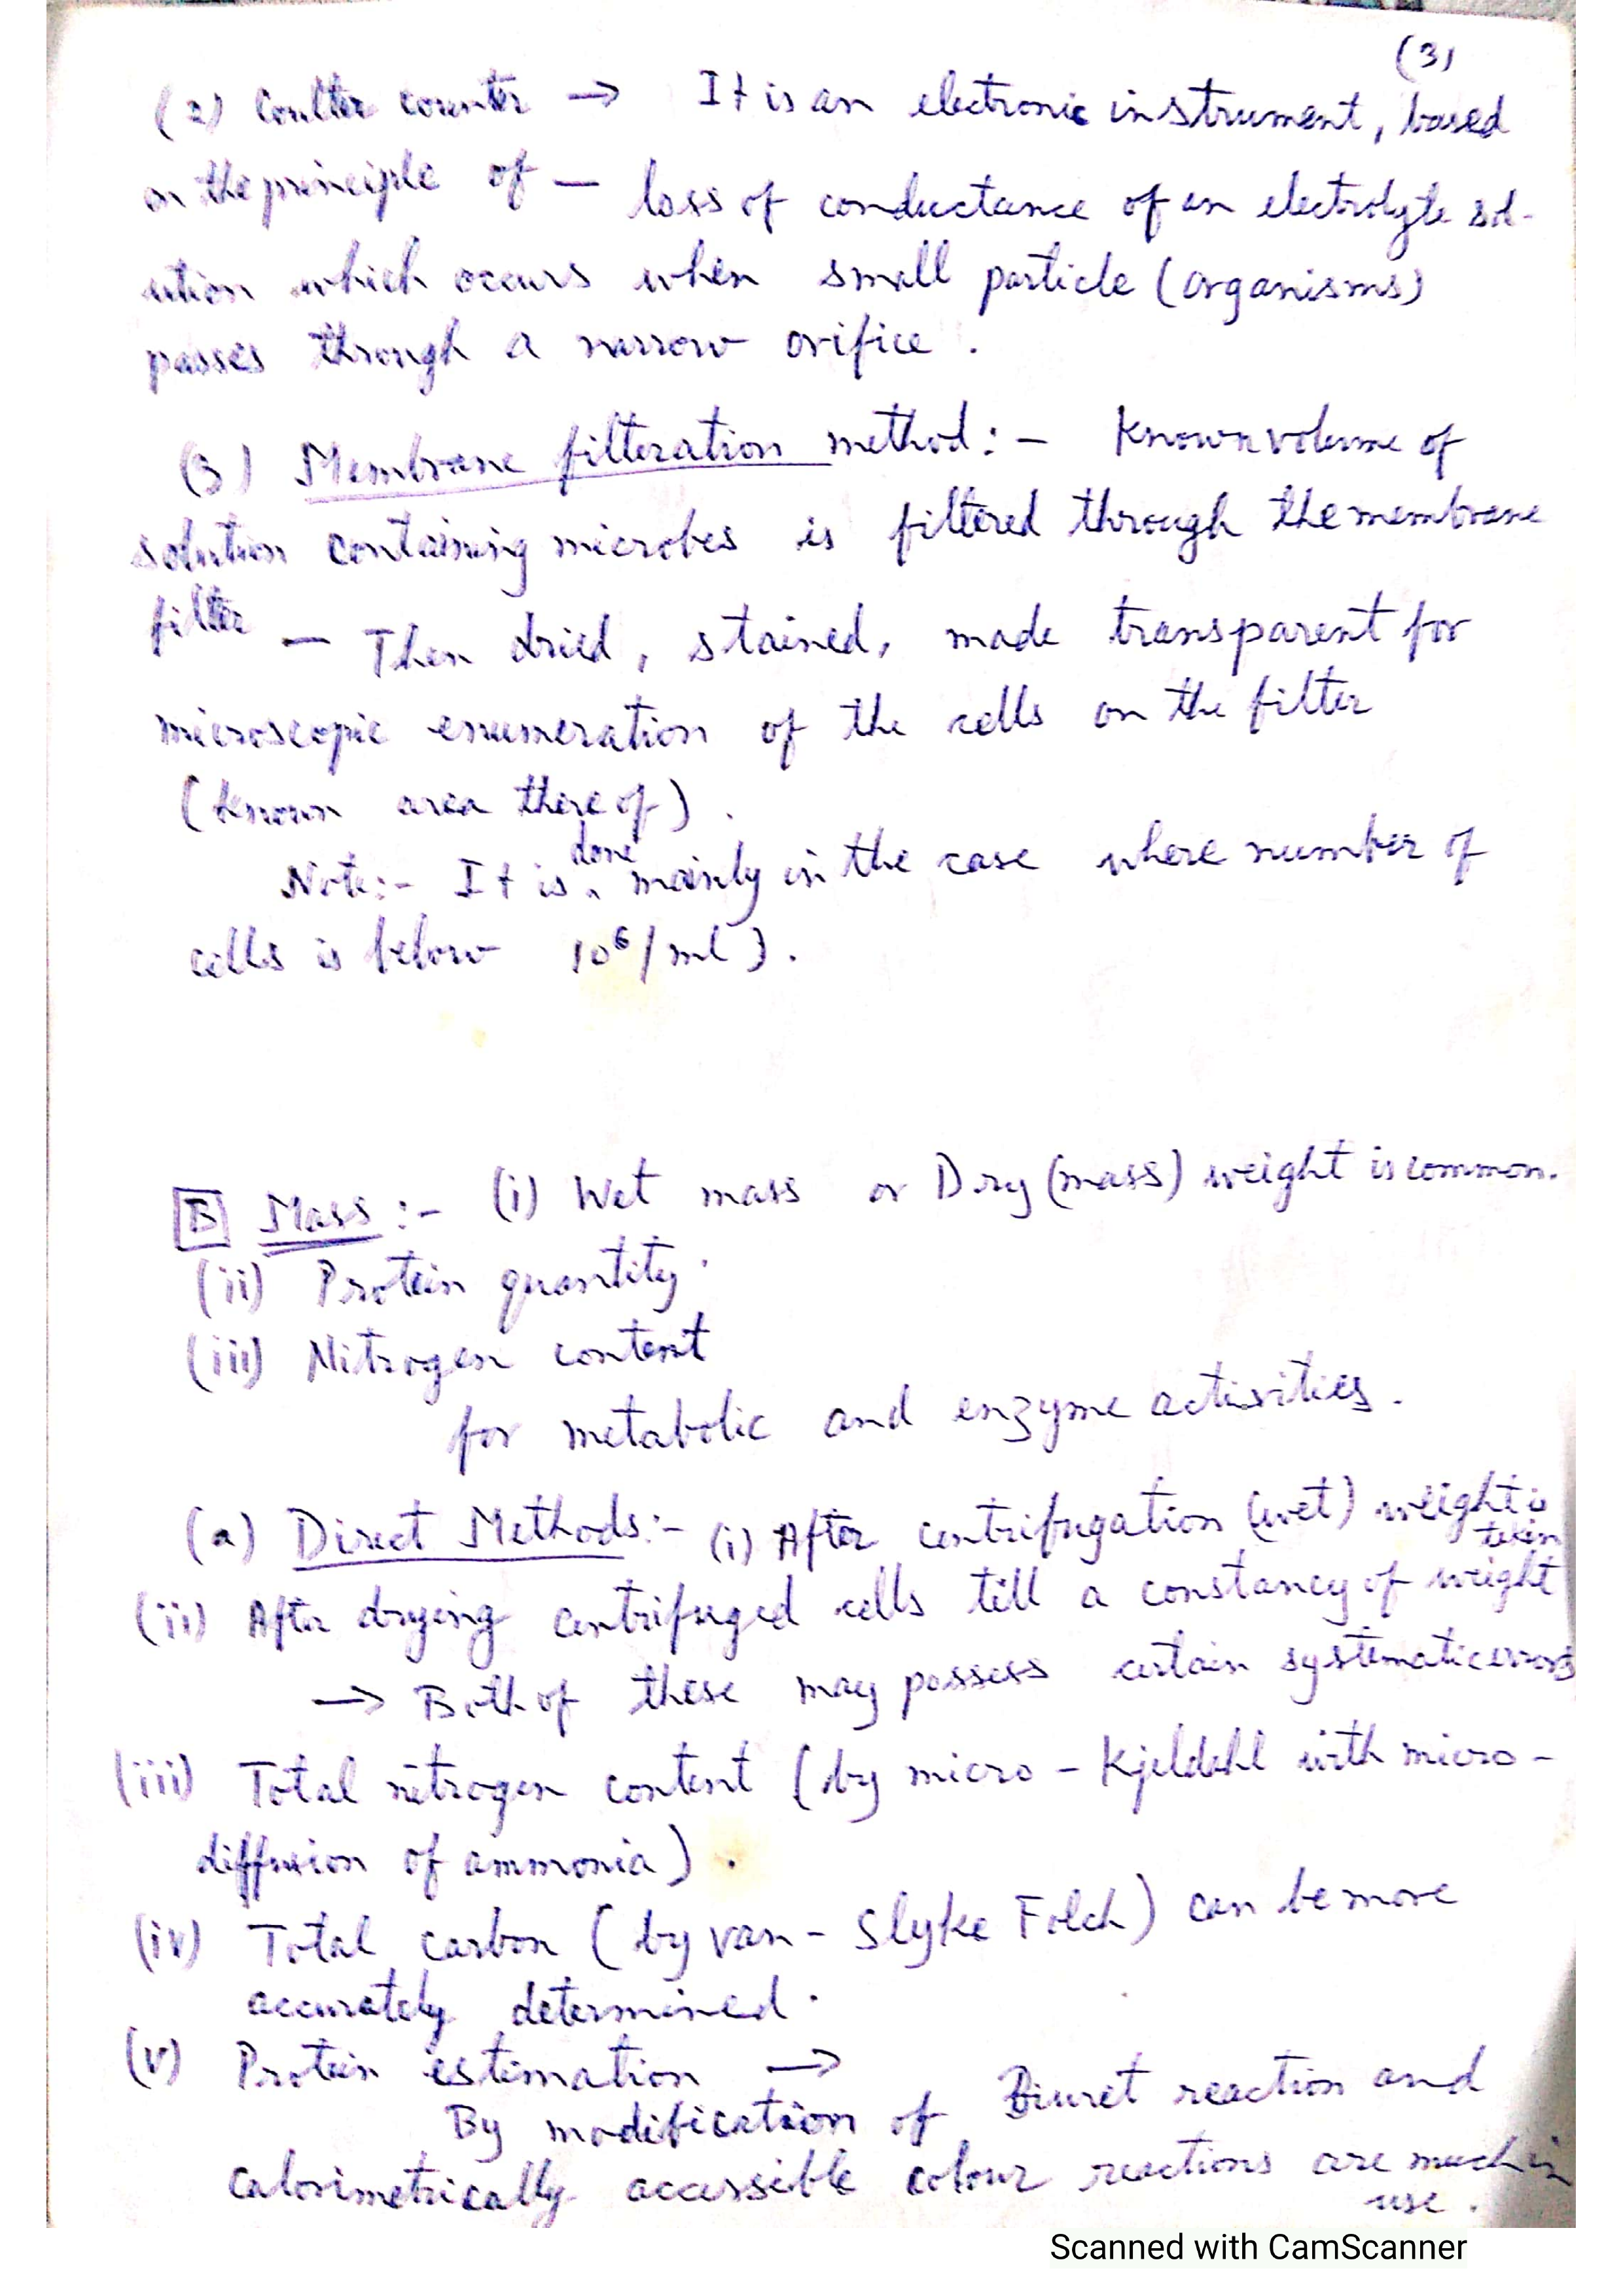 (3)
(2) Coulter counter → It is an electronic instrument, based
on the principle of — loss of conductance of an electrolyte sol-
ution which occurs when small particle (organisms)
passes through a narrow orifice .
(3) Membrane filteration method :- Known volume of
solution containing microbes is filtered through the membrane
filter — Then dried, stained, made transparent for
microscopic enumeration of the cells on the filter
(known area there of) .
Note:- It is done mainly in the case where number of
cells is below 10⁶/ml ) .
B Mass :- (i) Wet mass or Dry (mass) weight is common.
(ii) Protein quantity .
(iii) Nitrogen content
for metabolic and enzyme activities .
(a) Direct Methods:- (i) After centrifugation (wet) weight is taken
(ii) After drying centrifuged cells till a constancy of weight
→ Both of these may possess certain systematic errors
(iii) Total nitrogen content (by micro - Kjeldahl with micro -
diffusion of ammonia) .
(iv) Total carbon (by van - Slyke Folch) can be more
accurately determined .
(v) Protein estimation →
By modification of Biuret reaction and
calorimetrically accessible colour reactions are much in
use .
Scanned with CamScanner